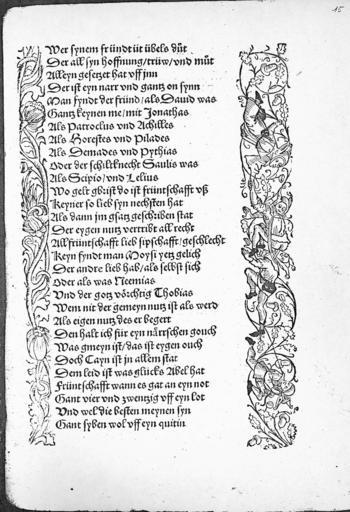 15
Wer synem fründt üt übels důt
Der all syn hoffnung/trüw/vnd můt
Alleyn gesetzet hat vff jnn
Der ist eyn narr vnd gantz on synn
Man fyndt der fründ/als Dauid was
Gantz keynen me/mit Jonathas
Als Patroclus vnd Achilles
Als Horestes vnd Pilades
Als Demades vnd Pythias
Oder der schiltknecht Saulis was
Als Scipio/vnd Lelius
Wo gelt gbrist do ist früntschafft vß
Keyner so lieb syn nechsten hat
Als dann jm gsatz geschriben stat
Der eygen nutz vertribt all recht
All früntschafft lieb sipschafft/geschlecht
Keyn fyndt man Moysi yetz gelich
Der andre lieb hab/als selbst sich
Oder als was Neemias
Vnd der gotzvörchtig Thobias
Wem nit der gemeyn nutz ist als werd
Als eigen nutz des er begert
Den halt ich für eyn närrschen gouch
Was gmeyn ist/das ist eygen ouch
Doch Cayn ist jn allem stat
Dem leid ist was glücks Abel hat
Früntschafft wann es gat an eyn not
Gant vier vnd zwentzig vff eyn lot
Vnd wel die besten meynen syn
Gant syben wol vff eyn quitin